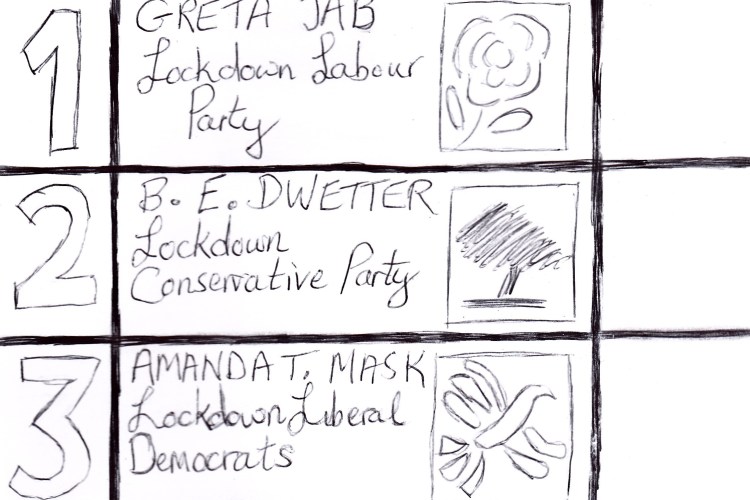 1
GRETA JAB
Lockdown Labour
Party
2
B. E. DWETTER
Lockdown
Conservative Party
3
AMANDA T. MASK
Lockdown Liberal
Democrats